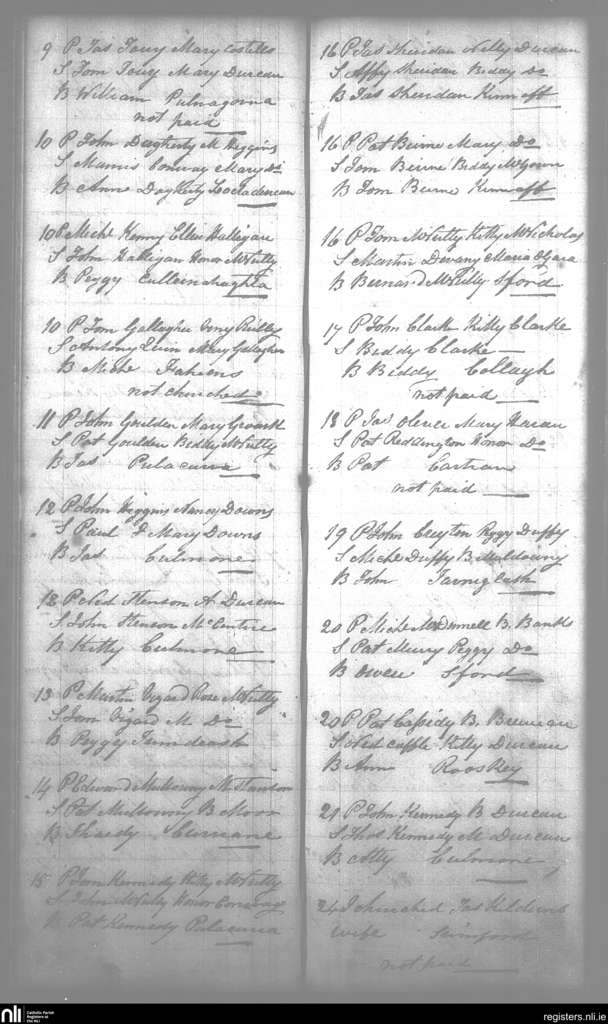 9 P Jas Touy Mary Costello
S Tom Touy Mary Duncan
B William Pulnagorna
not paid
10 P John Dagherty M Higgins
S Mannis Conway Mary Do
B Anne Dogherty
10 P Michl Kenny Ellen Halligan
S John Halligan Honor McNulty
B Peggy Culleenahaghta
10 P Tom Gallagher Onny Reilly
S Antony Quin Mary Gallagher
B Michl
not churched
11 P John Goulden Mary
S Pat Goulden Biddy McNulty
B Jas Pulacurra
12 P John Higgins Nancy Downs
S Paul & Mary Downs
B Jas Culmone
12 P Ned Stenson A. Duncan
S John Stenson M Centire
B Kitty Culmone
13 P Martin Vizard Rose McNulty
S Tom Vizard M Do
B Peggy
14 P Edward Mullowny M Staunton
S Pat Mullowny B Moor
B
15 P Tom Kennedy Kitty McNulty
S John McNulty Honor Conway
B Pat Kennedy Pulacurra
16 P Jas Sheridan Nelly Duncan
S Affy Sheridan Biddy Do
B Jas Sheridan Kinnaft
16 P Pat Beirne Mary Do
S Tom Beirne Biddy McGown
B Tom Beirne Kinnaft
16 P Tom McNulty Kitty McNicholas
S Martin Devany Maria OGara
B Bernard McNulty Sford
17 P John Clark Kitty Clarke
S Biddy Clarke
B Biddy Collagh
not paid
18 P Jas Mary Haran
S Pat Reddington Honor Do
B Pat Cartron
not paid
19 P John Creyton Peggy Duffy
S Michl Duffy B Muldowny
B John
20 P Michl McDonnell B. Banks
S Pat Murry Peggy Do
B Owen Sford
20 P Pat Cassidy B. Brennan
S Ned Kitty Duncan
B Ann Rooskey
21 P John Kennedy B Duncan
S Thos Kennedy M Duncan
B Culmone
24 Jas Kilduns
wife Swinford
not paid
nli
Catholic Parish
Registers at
the NLI
registers.nli.ie